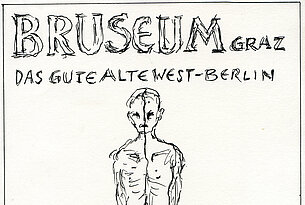 BRUSEUM GRAZ
DAS GUTE ALTE WEST-BERLIN